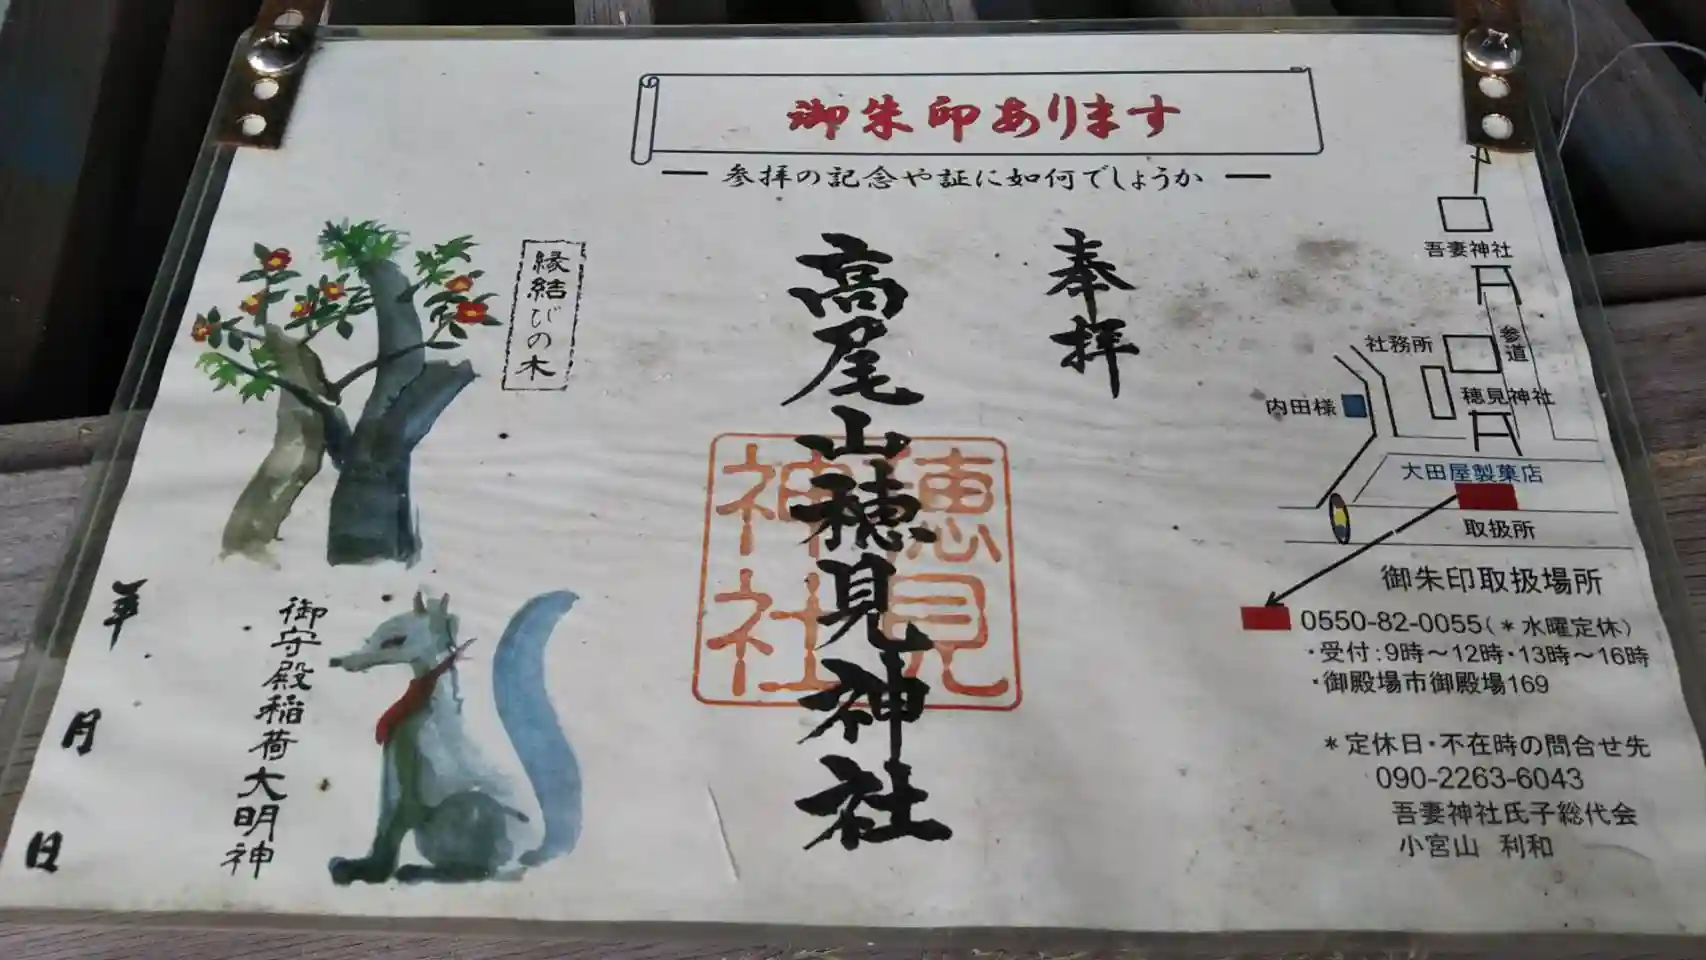 御朱印あります
参拝の記念や証に如何でしょうか
奉拝
高尾山穂見神社
穂見神社
縁結びの木
御守殿稲荷大明神
年 月 日
吾妻神社
参道
社務所
穂見神社
内田様
大田屋製菓店
取扱所
御朱印取扱場所
0550-82-0055(*水曜定休)
・受付:9時～12時・13時～16時
・御殿場市御殿場169
*定休日・不在時の問合せ先
090-2263-6043
吾妻神社氏子総代会
小宮山 利和